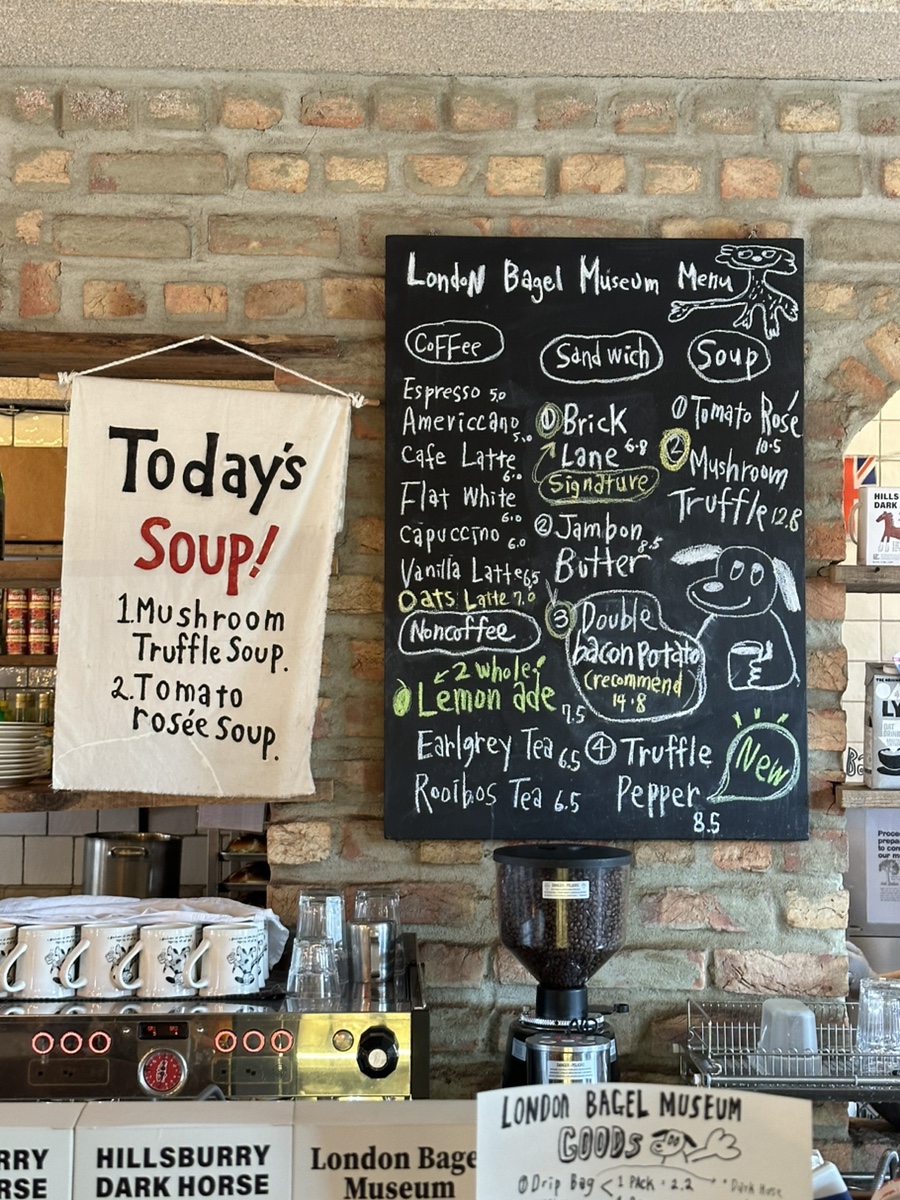 London Bagel Museum Menu
Coffee
Espresso 5.0
Americcano 5.0
Cafe Latte 6.0
Flat White 6.0
Capuccino 6.0
Vanilla Latte 6.5
Oats Latte 7.0
Noncoffee
2 whole
Lemon ade 7.5
Earlgrey Tea 6.5
Rooibos Tea 6.5
Sandwich
① Brick
Lane 6.8
Signature
② Jambon
Butter 8.5
③ Double
bacon potato
(recommend)
14.8
④ Truffle
Pepper
8.5
New
Soup
① Tomato Rosé
10.5
② Mushroom
Truffle 12.8
Today's
Soup!
1. Mushroom
Truffle Soup.
2. Tomato
rosée Soup.
HILLS
DARK
LY
HILLSBURRY
DARK HORSE
RRY
RSE
London Bage
Museum
LONDON BAGEL MUSEUM
GOODS
① Drip Bag < 1 PACK : 2.2